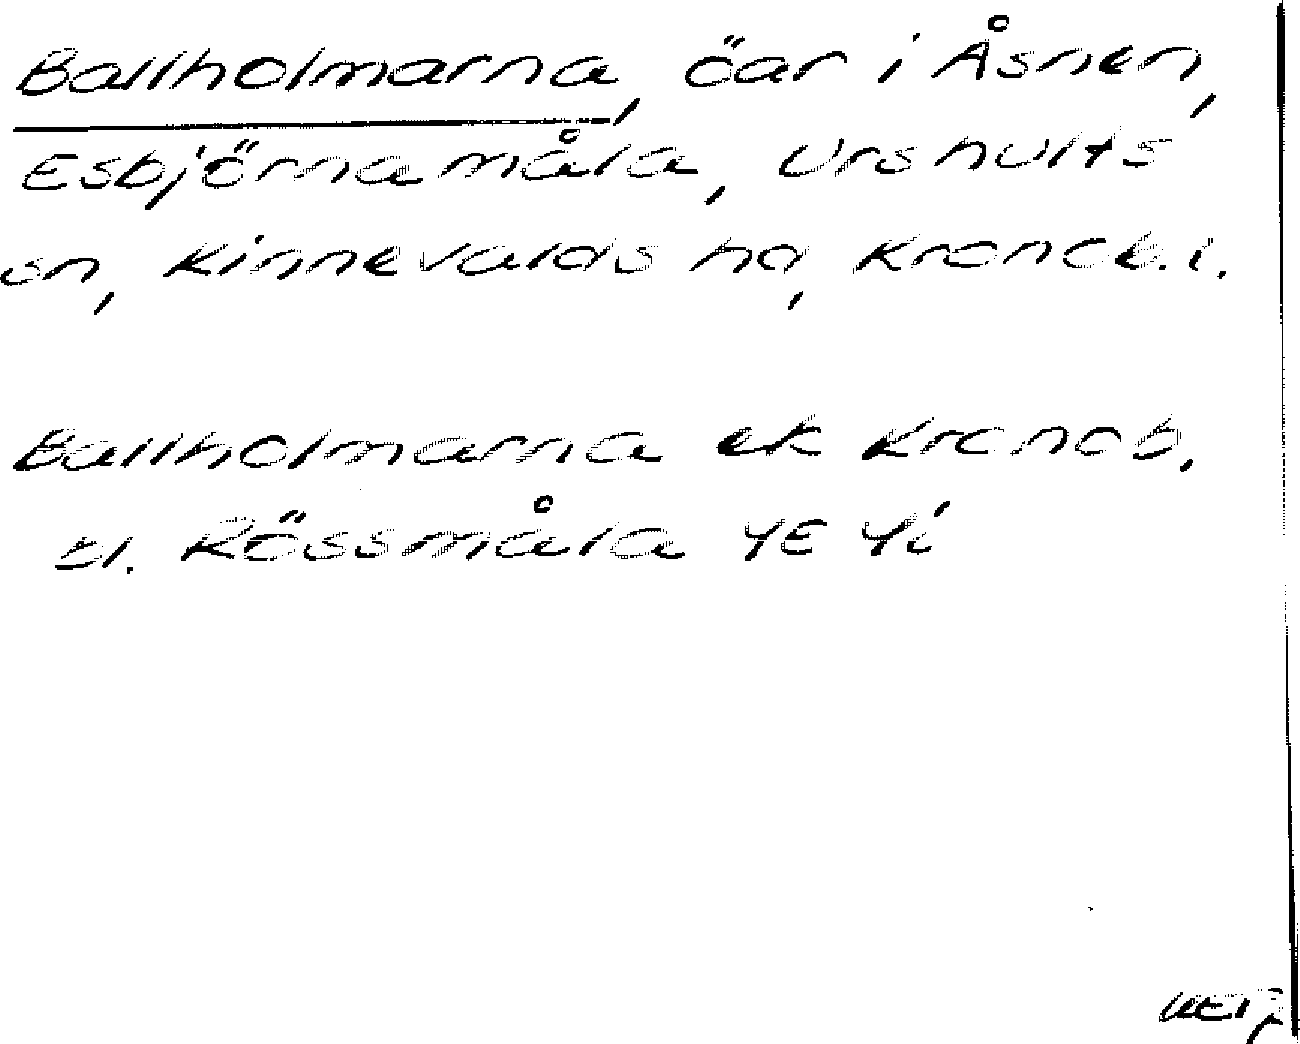 Ballholmarna, öar i Åsnen,
Esbjörnamåla, Urshults
sn, Kinnevalds hd, Kronob. l.
Ballholmarna ek Kronob.
bl. Rössmåla 4E 4i